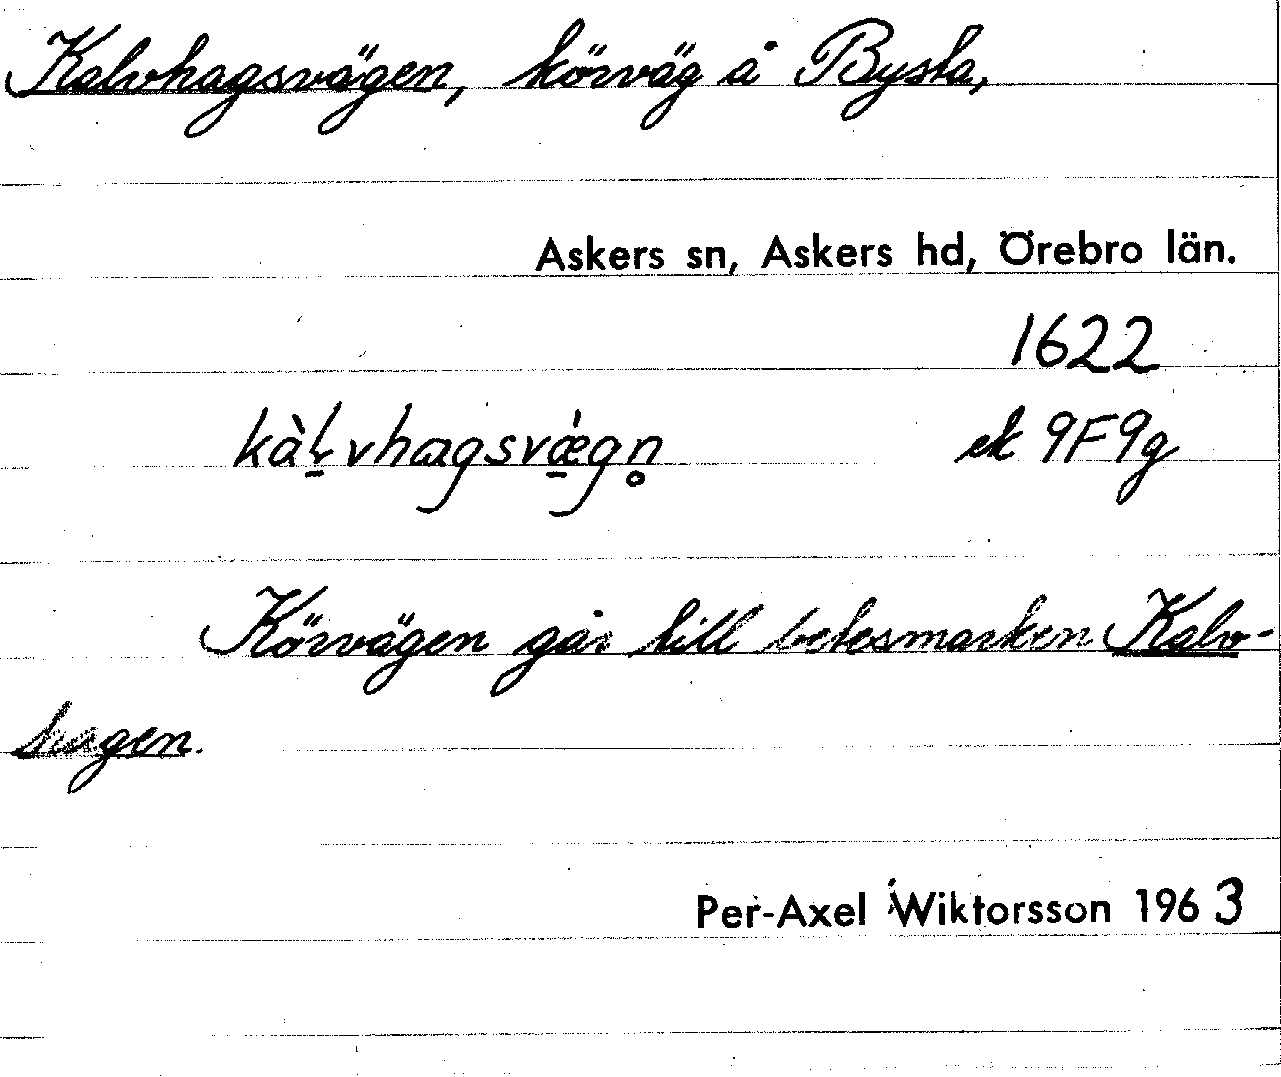 Kalvhagsvägen, körväg å Bysta,
Askers sn, Askers hd, Örebro län.
1622
kàḷvhagsvǽgn̥ ek 9F9g
Körvägen går till betesmarken Kalv-
hagen.
Per-Axel Wiktorsson 1963